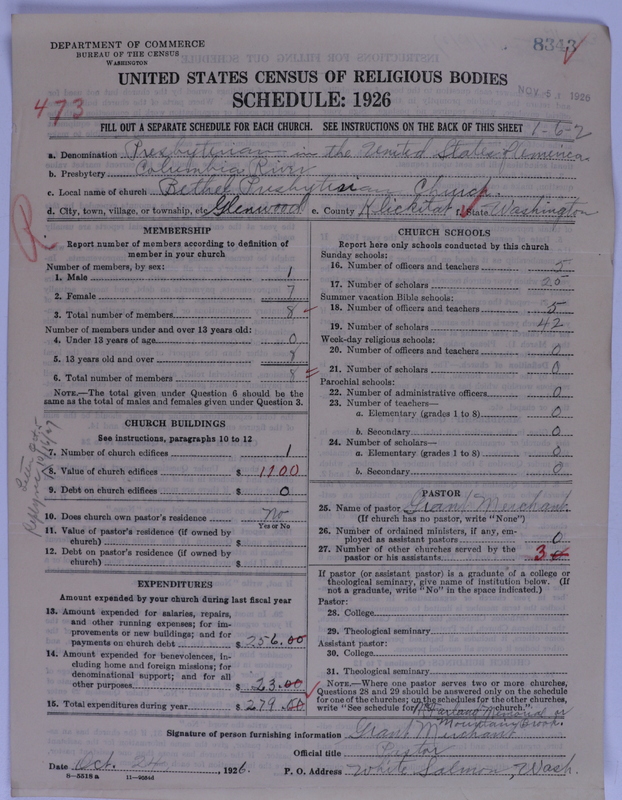 DEPARTMENT OF COMMERCE
BUREAU OF THE CENSUS
WASHINGTON
8343
UNITED STATES CENSUS OF RELIGIOUS BODIES
SCHEDULE: 1926
NOV 5 1926
473
FILL OUT A SEPARATE SCHEDULE FOR EACH CHURCH. SEE INSTRUCTIONS ON THE BACK OF THIS SHEET 1-6-2
a. Denomination Presbyterian in the United States America
b. Presbytery Columbia River
c. Local name of church Bethel Presbyterian Church.
d. City, town, village, or township, etc Glenwood e. County Klickitat f. State Washington
R
MEMBERSHIP
Report number of members according to definition of
member in your church
Number of members, by sex:
1. Male 1
2. Female 7
3. Total number of members 8
Number of members under and over 13 years old:
4. Under 13 years of age 0
5. 13 years old and over 8
6. Total number of members 8
NOTE.—The total given under Question 6 should be
same as the total of males and females given under Question 3.
CHURCH BUILDINGS
See instructions, paragraphs 10 to 12
7. Number of church edifices 1
8. Value of church edifices $ 1100
9. Debt on church edifices $ 0
10. Does church own pastor's residence No
Yes or No
11. Value of pastor's residence (if owned by
church) $
12. Debt on pastor's residence (if owned by
church) $
EXPENDITURES
Amount expended by your church during last fiscal year
13. Amount expended for salaries, repairs,
and other running expenses; for im-
provements or new buildings; and for
payments on church debt $ 256.00
14. Amount expended for benevolences, in-
cluding home and foreign missions; for
denominational support; and for all
other purposes $ 23.00
15. Total expenditures during year $ 279.00
CHURCH SCHOOLS
Report here only schools conducted by this church
Sunday schools:
16. Number of officers and teachers 5
17. Number of scholars 25
Summer vacation Bible schools:
18. Number of officers and teachers 5
19. Number of scholars 42
Week-day religious schools:
20. Number of officers and teachers 0
21. Number of scholars 0
Parochial schools:
22. Number of administrative officers 0
23. Number of teachers—
a. Elementary (grades 1 to 8) 0
b. Secondary 0
24. Number of scholars—
a. Elementary (grades 1 to 8) 0
b. Secondary 0
PASTOR
25. Name of pastor Grant Merchant
(If church has no pastor, write "None")
26. Number of ordained ministers, if any, em-
ployed as assistant pastors 0
27. Number of other churches served by the
pastor or his assistants 3
If pastor (or assistant pastor) is a graduate of a college or
theological seminary, give name of institution below. (If
not a graduate, write "No" in the space indicated.)
Pastor:
28. College
29. Theological seminary
Assistant pastor:
30. College
31. Theological seminary
NOTE.—Where one pastor serves two or more churches,
Questions 28 and 29 should be answered only on the schedule
for one of the churches; on the schedules for the other churches,
write "See schedule for Memorial or church."
Mountain Brook
Signature of person furnishing information Grant Merchant
Official title Pastor
Date Oct. 24, 1926. P. O. Address White Salmon, Wash.
8-5518 a